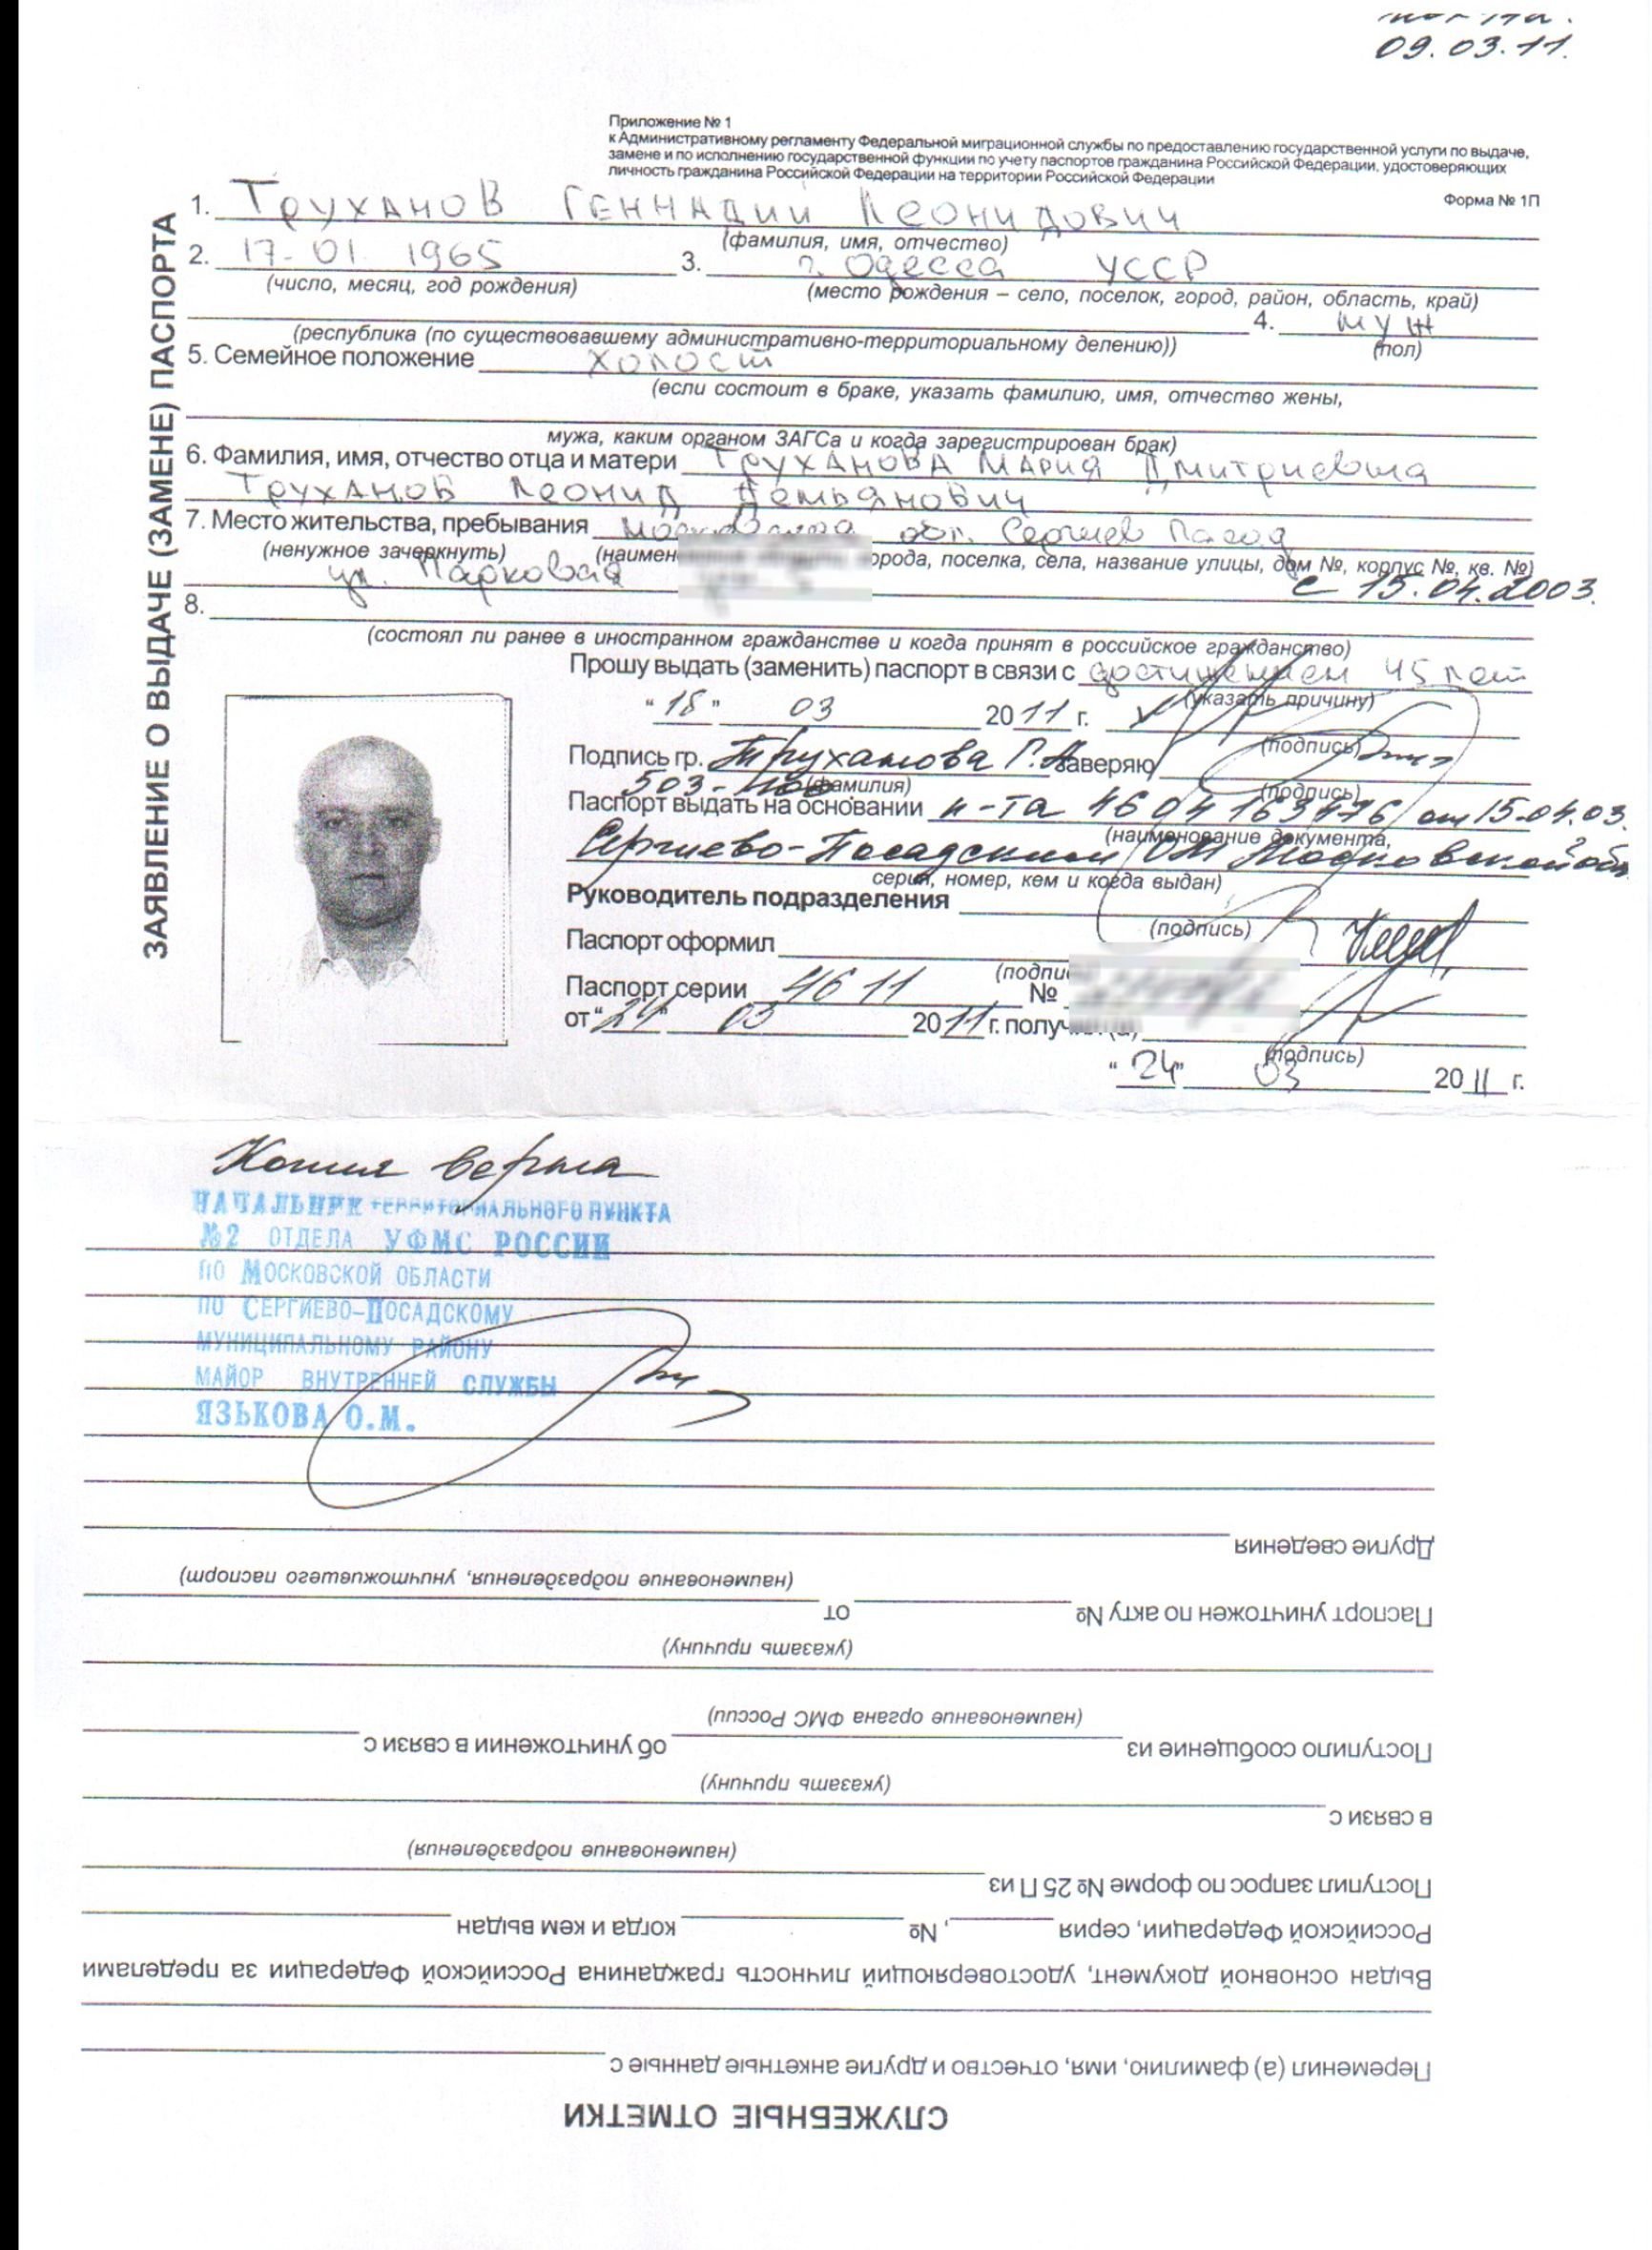 09.03.11.
Приложение № 1
к Административному регламенту Федеральной миграционной службы по предоставлению государственной услуги по выдаче,
замене и по исполнению государственной функции по учету паспортов гражданина Российской Федерации, удостоверяющих
личность гражданина Российской Федерации на территории Российской Федерации
Форма № 1П
ЗАЯВЛЕНИЕ О ВЫДАЧЕ (ЗАМЕНЕ) ПАСПОРТА
1. Труханов Геннадий Леонидович
(фамилия, имя, отчество)
2. 17-01 1965 3. г. Одесса УССР
(число, месяц, год рождения) (место рождения – село, поселок, город, район, область, край)
4. муж
(республика (по существовавшему административно-территориальному делению)) (пол)
5. Семейное положение холост
(если состоит в браке, указать фамилию, имя, отчество жены,
мужа, каким органом ЗАГСа и когда зарегистрирован брак)
6. Фамилия, имя, отчество отца и матери Труханова Мария Дмитриевна
Труханов Леонид Демьянович
7. Место жительства, пребывания Московская обл. Сергиев Посад
(ненужное зачеркнуть) (наимен орода, поселка, села, название улицы, дом №, корпус №, кв. №)
ул. Парковая с 15.04.2003.
8.
(состоял ли ранее в иностранном гражданстве и когда принят в российское гражданство)
Прошу выдать (заменить) паспорт в связи с достижением 45 лет
(указать причину)
“18” 03 2011 г.
(подпись)
Подпись гр. Труханова Г.Л. заверяю
(фамилия) (подпись)
503-
Паспорт выдать на основании п-та 46 04 163476 от 15.04.03.
(наименование документа,
Сергиево-Посадским ОМ Московской обл
серия, номер, кем и когда выдан)
Руководитель подразделения
(подпись)
Паспорт оформил
(подпи
Паспорт серии 46 11 №
от “24” 03 2011 г. получ
(подпись)
“24” 03 2011 г.
Копия верна
НАЧАЛЬНИК ТЕРРИТОРИАЛЬНОГО ПУНКТА
№2 ОТДЕЛА УФМС РОССИИ
ПО МОСКОВСКОЙ ОБЛАСТИ
ПО СЕРГИЕВО-ПОСАДСКОМУ
МУНИЦИПАЛЬНОМУ РАЙОНУ
МАЙОР ВНУТРЕННЕЙ СЛУЖБЫ
ЯЗЬКОВА О.М.
СЛУЖЕБНЫЕ ОТМЕТКИ
Переменил (а) фамилию, имя, отчество и другие анкетные данные с
Выдан основной документ, удостоверяющий личность гражданина Российской Федерации за пределами
Российской Федерации, серия , № когда и кем выдан
Поступил запрос по форме № 25 П из
(наименование подразделения)
в связи с
(указать причину)
Поступило сообщение из об уничтожении в связи с
(наименование органа ФМС России)
(указать причину)
Паспорт уничтожен по акту № от
(наименование подразделения, уничтожившего паспорт)
Другие сведения